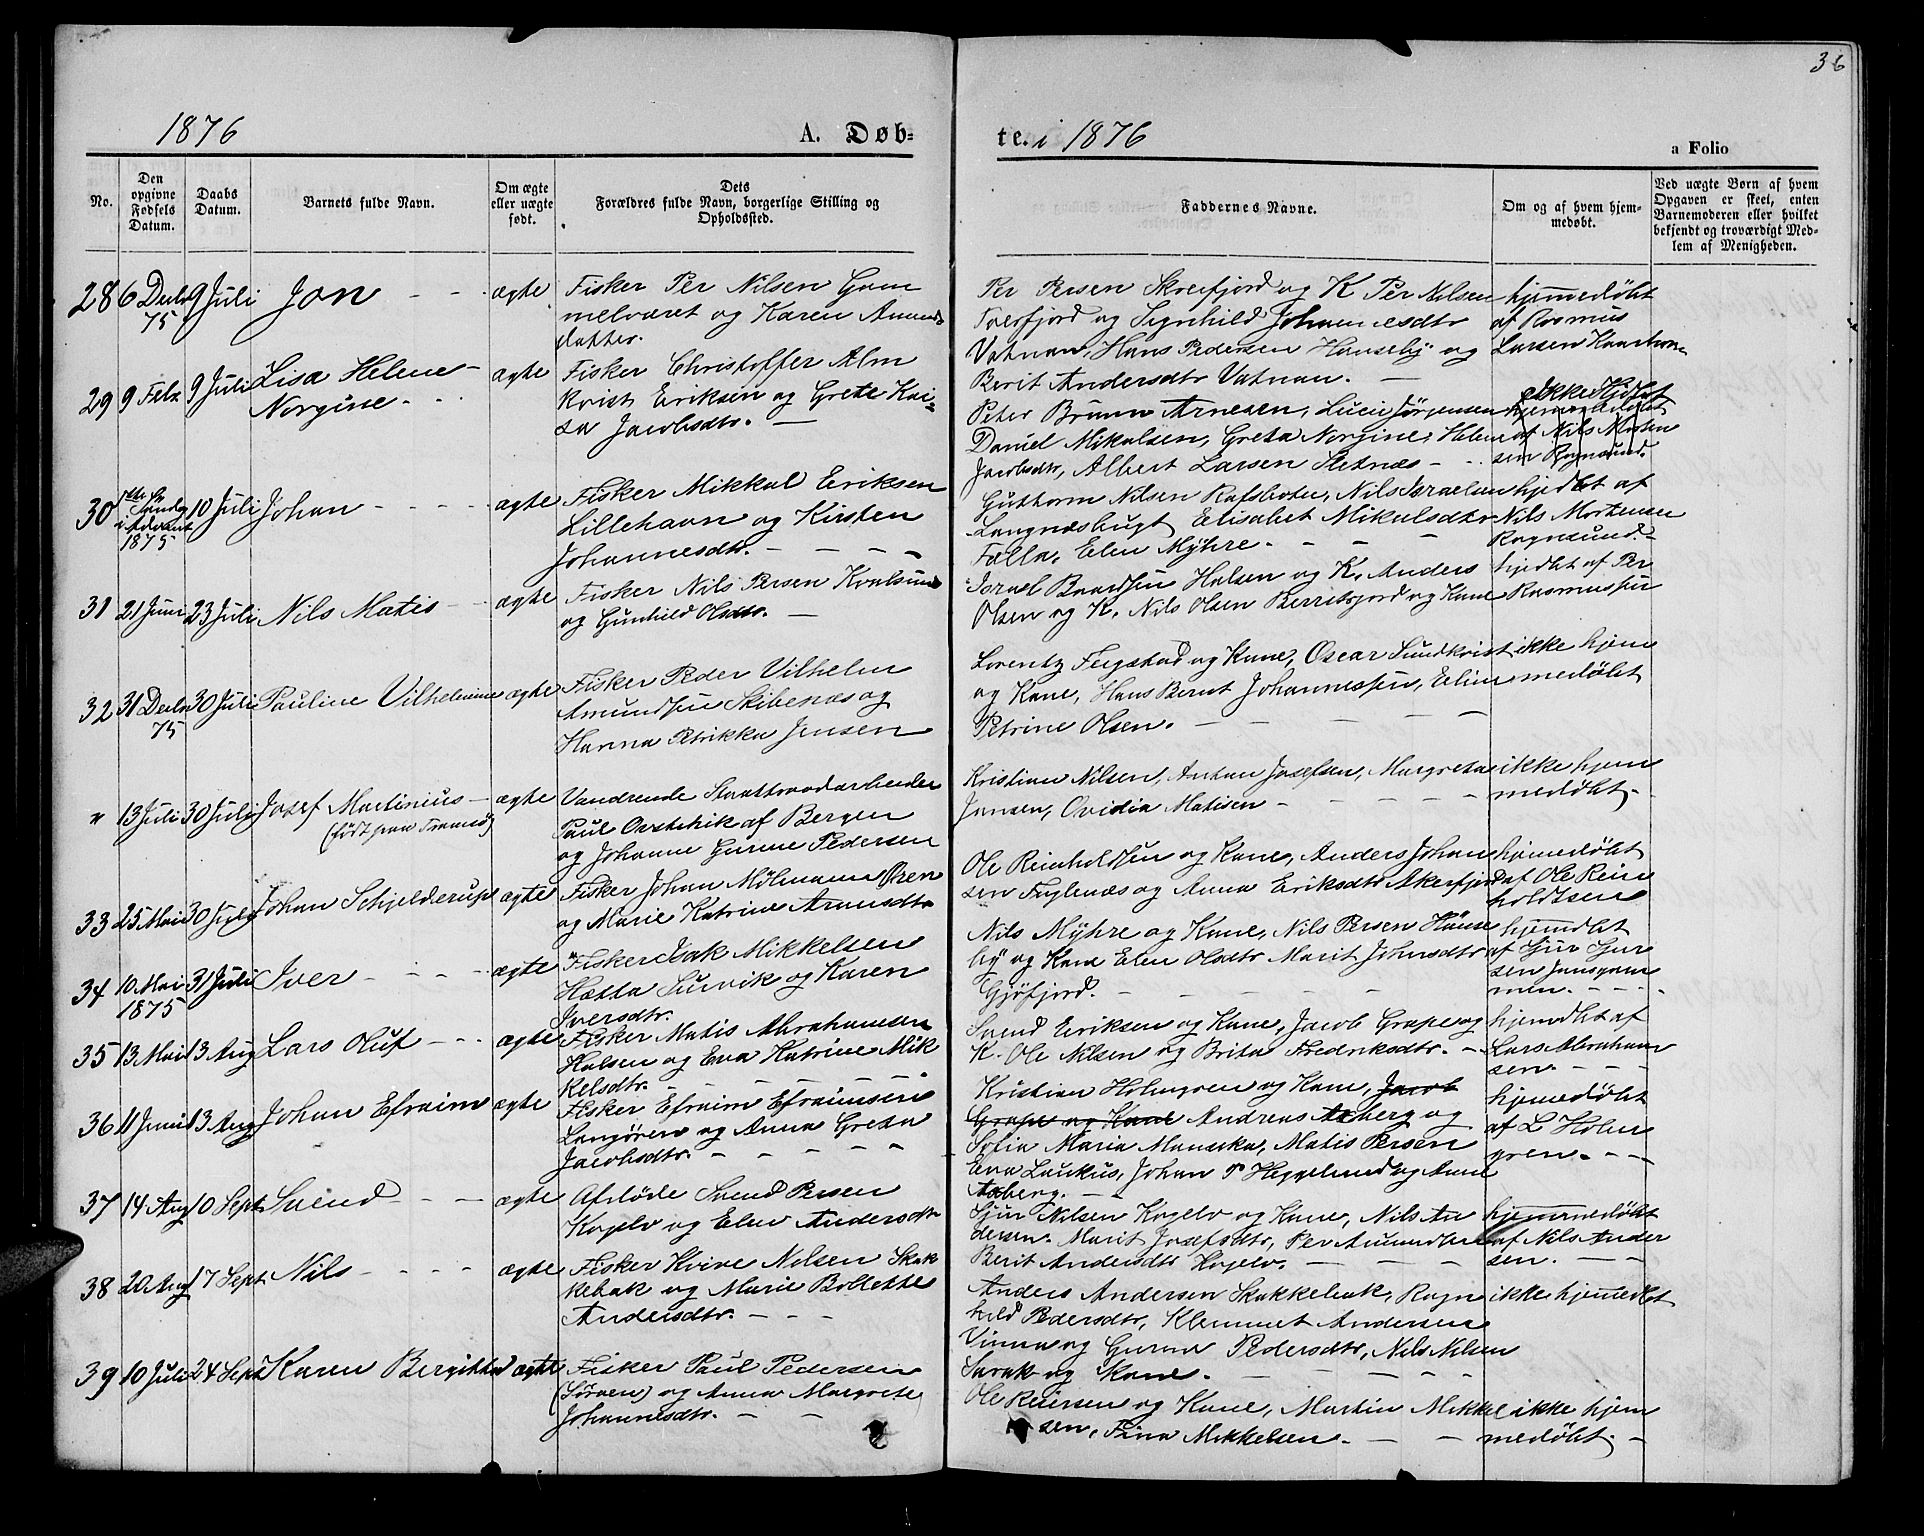 36
1876 A. Døb-
te. i 1876
a Folio
No.
Den opgivne Fødsels Datum.
Daabs Datum.
Barnets fulde Navn.
Om ægte eller uægte født.
Dets Forældres fulde Navn, borgerlige Stilling og Opholdssted.
Faddernes Navne.
Om og af hvem hjem-
medøbt.
Ved uægte Børn af hvem
Opgaven er skeet, enten
Barnemoderen eller hvilket
bekjendt og troværdigt Med-
lem af Menigheden.
28 6 Decbr 75 9 Juli Jon - - - ægte
Fisker Per Nilsen Gam
melværet og Karen Amunds
datter.
Per Persen Skreifjord og K Per Nilsen
Tverfjord og Signhild Johannesdtr
Vatnan, Hans Pedersen Hanseby og
Berit Andersdtr Vatnan. -
hjemmedøbt
af Rasmus
Larsen
29 9 Febr 9 Juli Lisa Helene -
Norgine - - - ægte
Fisker Christoffer Alm
kvist Eriksen og Grete Kai-
sa Jacobsdtr. -
Peter Bruun Arnesen, Lucie Jørgensen
Daniel Mikalsen, Greta Norgine, Helene
Jacobsdtr, Albert Larsen Sletnæs - -
ikke Hjdøbt
hjemmedøbt
af Nils Morten
sen Rognsund.
30 1ste Søndg i Advent 1875 10 Juli Johan - - - - ægte
Fisker Mikkal Eriksen
Lillehavn og Kirsten
Johannesdtr. - - - -
Guthorm Nilsen Rafsbotn, Nils Israelsen
Langnæsbugt Elisabet Mikalsdtr
Fælla, Elen Myhre. - - - -
hjdøbt af
Nils Mortensen
Rognsund. -
31 21 Juni 23 Juli Nils Matis - - ægte
Fisker Nils Persen Kvalsund
og Gunhild Olsdtr. -
Israel Baardsen Halsen og K. Anders
Olsen og K. Nils Olsen Berritsfjord og Kone
hjdbt af Per
Rasmussen
32 31 Decbr 75 30 Juli Pauline Vilhelmine ægte
Fisker Peder Vilhelm
Amundsen Skibenæs og
Hanna Petrikka Jensen
Lorentz Fugestad og Kone, Oscar Sundkvist
og Kone, Hans Bernt Johannessen, Elen
Petrine Olsen. - - - - -
ikke hjem
medøbt
" 13 Juli 30 Juli Josef Martinius - ægte
(født paa Tromsø)
Vandrende Staaltraadarbeider
Paul af Bergen
og Johanne Gurine Pedersen
Kristian Nilsen, Anton Josefsen, Margreta
Jansen, Ovidia Matisen - - - -
ikke hjem
medøbt -
33 25 Mai 30 Juli Johan Schjelderup ægte
Fisker Johan Mølmann Øren
og Marie Katrine Arnesdtr
Ole Reinholdsen og Kone, Anders Johan
sen Fuglenæs og Anna Eriksdtr Akerfjord
hjemedøbt
af Ole Rein
holdtsen
34 10 Mai 1875 31 Juli Iver - - - - ægte
Fisker Isak Mikkelsen
Hætta Survik og Karen
Iversdtr.
Nils Myhre og Kone, Nils Persen Hanse
by og Kone Elen Olsdtr Marit Johnsdtr
Gjøfjord. - - - - -
hjemdbt
af Gjur Gjur
sen Jansgam
men. - - - -
35 13 Mai 13 Aug Lars Oluf - - - ægte
Fisker Matis Abrahamsen
Halsen og Eva Katrine Mik
kelsdtr. - - - -
Svend Eriksen og Kone, Jacob Grape og
K. Ole Nilsen og Brita Fredriksdtr. -
hjemdbt af
Lars Abraham
sen. - - -
36 11 Juni 13 Aug Johan Efraim ægte
Fisker Efraim Efraimsen
Langøren og Anna Greta
Jacobsdtr. - - - - -
Kristian Holmgren og Kone, Jacob
Grape og Kone Andreas Aaberg og
Sofia Maria Manseka, Matis Persen
Eva Laukus, Johan P Heggelund og Anne
Aaberg. -
hjemedøbt
af L Holm
gren. - - -
37 14 Aug 10 Sept Svend - - - ægte
Afdøde Svend Persen
Kogelv og Elen Andersdtr
Sjur Nilsen Kogelv og Kone, Nils An
dersen. Marit Josefsdtr, Per Amundsen
Berit Andersdtr Kogelv. - - -
hjemmedøbt
af Nils Ander
sen. - -
38 20 Aug 17 Sept Nils - - - - ægte
Fisker Kvive Nilsen Skak
kebak og Marie Bollette
Andersdtr. - - -
Anders Andersen Skakkebak, Ragn
hild Pedersdtr, Klemmet Andersen
Vinna og Gurine Pedersdtr, Nils Nilsen
Sarak og Kone. - - - -
ikke hjemedbt
39 10 Juli 24 Sept Karen Bergitta ægte
Fisker Paul Pedersen
(Søraen) og Anna Margrete
Johannesdtr. - -
Ole Reiersen og Kone, Martin Mikkel
sen, Fina Mikkelsen. - - -
ikke hjem
medøbt. -